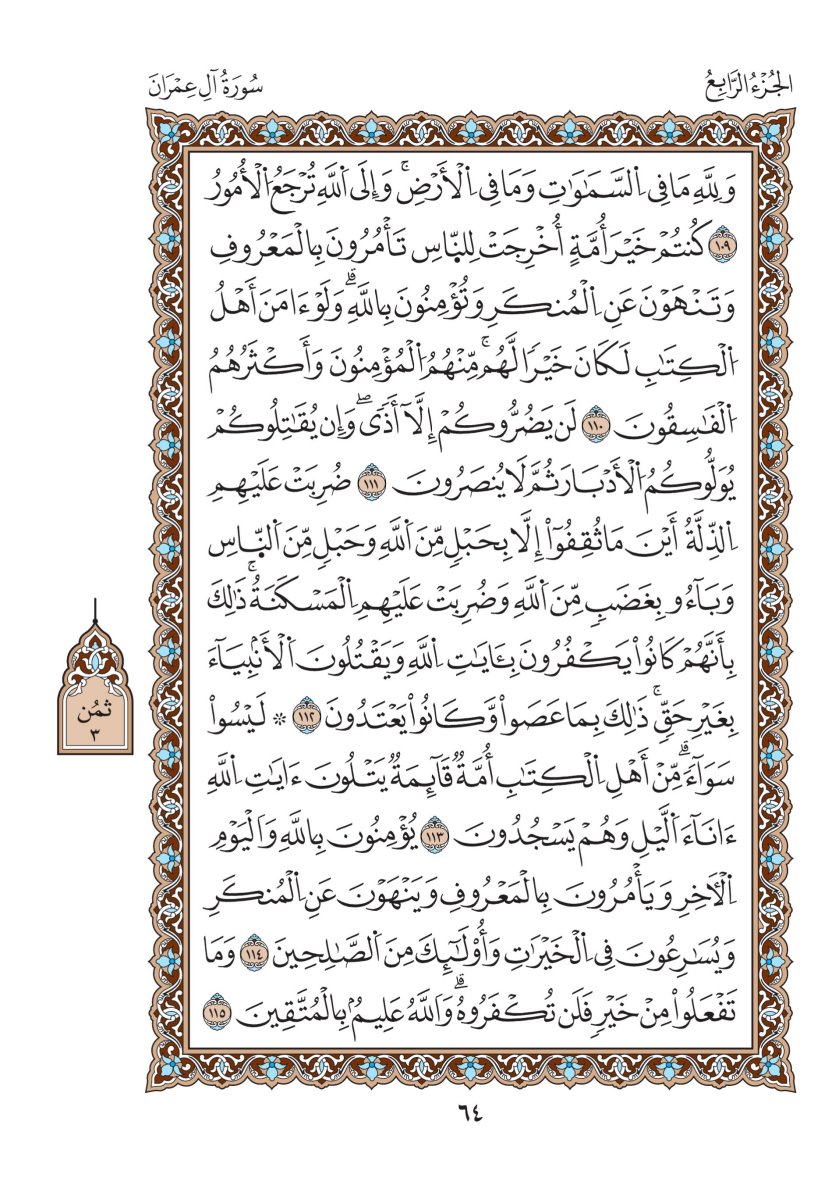 الجُزْءُ الرَّابِعُ
سُورَةُ آلِ عِمْرَانَ
وَلِلَّهِ مَا فِي اِ۬لسَّمَٰوَٰتِ وَمَا فِي اِ۬لْأَرْضِۚ وَإِلَى اَ۬للَّهِ تُرْجَعُ اُ۬لْأُمُورُ
١٠٩ كُنتُمْ خَيْرَ أُمَّةٍ أُخْرِجَتْ لِلنَّاسِ تَأْمُرُونَ بِالْمَعْرُوفِ
وَتَنْهَوْنَ عَنِ اِ۬لْمُنكَرِ وَتُؤْمِنُونَ بِاللَّهِۗ وَلَوْ ءَامَنَ أَهْلُ
اُ۬لْكِتَٰبِ لَكَانَ خَيْرٗا لَّهُمۚ مِّنْهُمُ اُ۬لْمُؤْمِنُونَ وَأَكْثَرُهُمُ
اُ۬لْفَٰسِقُونَ ١١٠ لَن يَضُرُّوكُمْ إِلَّا أَذٗىۖ وَإِن يُقَٰتِلُوكُمْ
يُوَلُّوكُمُ اُ۬لْأَدْبَارَ ثُمَّ لَا يُنصَرُونَ ١١١ ضُرِبَتْ عَلَيْهِمِ
اِ۬لذِّلَّةُ أَيْنَ مَا ثُقِفُوٓاْ إِلَّا بِحَبْلٖ مِّنَ اَ۬للَّهِ وَحَبْلٖ مِّنَ اَ۬لنَّاسِ
وَبَآءُو بِغَضَبٖ مِّنَ اَ۬للَّهِ وَضُرِبَتْ عَلَيْهِمِ اِ۬لْمَسْكَنَةُۚ ذَٰلِكَ
بِأَنَّهُمْ كَانُواْ يَكْفُرُونَ بِـَٔايَٰتِ اِ۬للَّهِ وَيَقْتُلُونَ اَ۬لْأَنۢبِيَآءَ
بِغَيْرِ حَقّٖۚ ذَٰلِكَ بِمَا عَصَواْ وَّكَانُواْ يَعْتَدُونَ ١١٢ ۞ لَيْسُواْ
سَوَآءٗۗ مِّنْ أَهْلِ اِ۬لْكِتَٰبِ أُمَّةٞ قَآئِمَةٞ يَتْلُونَ ءَايَٰتِ اِ۬للَّهِ
ءَانَآءَ اَ۬لَّيْلِ وَهُمْ يَسْجُدُونَ ١١٣ يُؤْمِنُونَ بِاللَّهِ وَالْيَوْمِ
اِ۬لْأٓخِرِ وَيَأْمُرُونَ بِالْمَعْرُوفِ وَيَنْهَوْنَ عَنِ اِ۬لْمُنكَرِ
وَيُسَٰرِعُونَ فِي اِ۬لْخَيْرَٰتِ وَأُوْلَٰٓئِكَ مِنَ اَ۬لصَّٰلِحِينَ ١١٤ وَمَا
تَفْعَلُواْ مِنْ خَيْرٖ فَلَن تُكْفَرُوهُۗ وَاللَّهُ عَلِيمُۢ بِالْمُتَّقِينَ ١١٥
ثُمُن
٣
٦٤